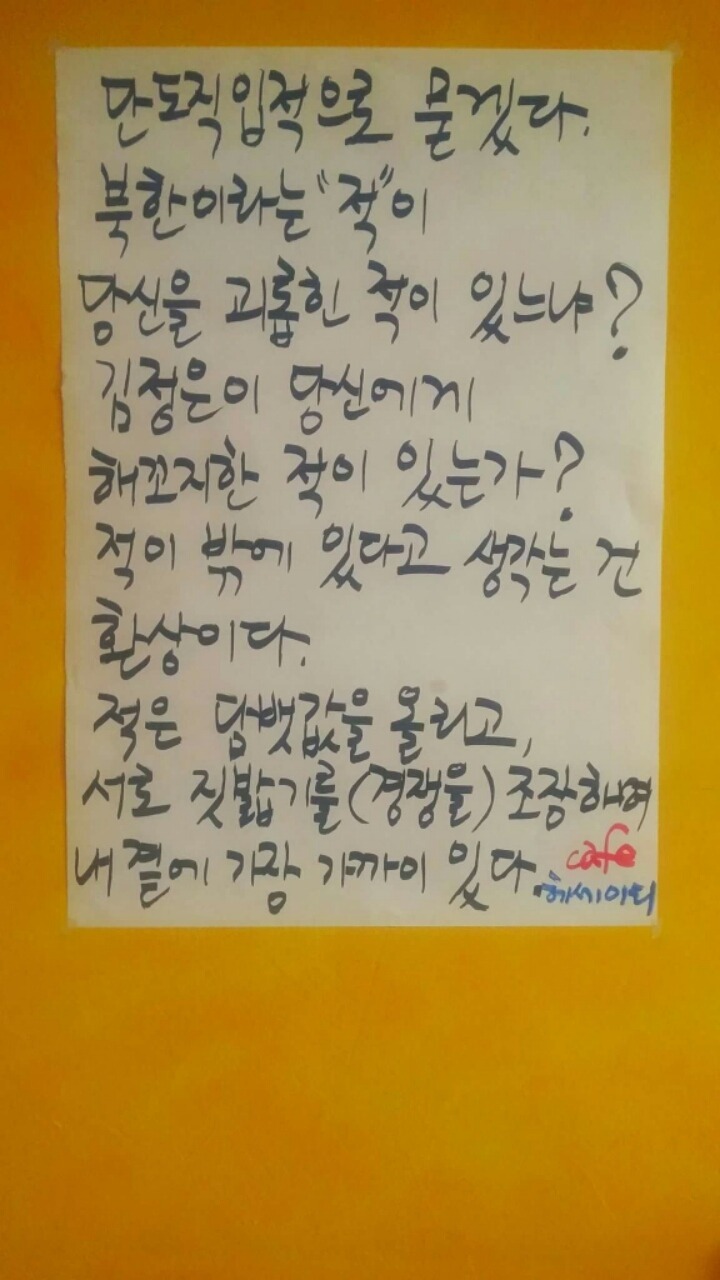 단도직입적으로 묻겠다.
북한이라는 "적"이
당신을 괴롭힌 적이 있느냐?
김정은이 당신에게
해꼬지한 적이 있는가?
적이 밖에 있다고 생각는 건
환상이다.
적은 담뱃값을 올리고,
서로 짓밟기를(경쟁을) 조장하며
내 곁에 가장 가까이 있다.
cafe
헤세이티